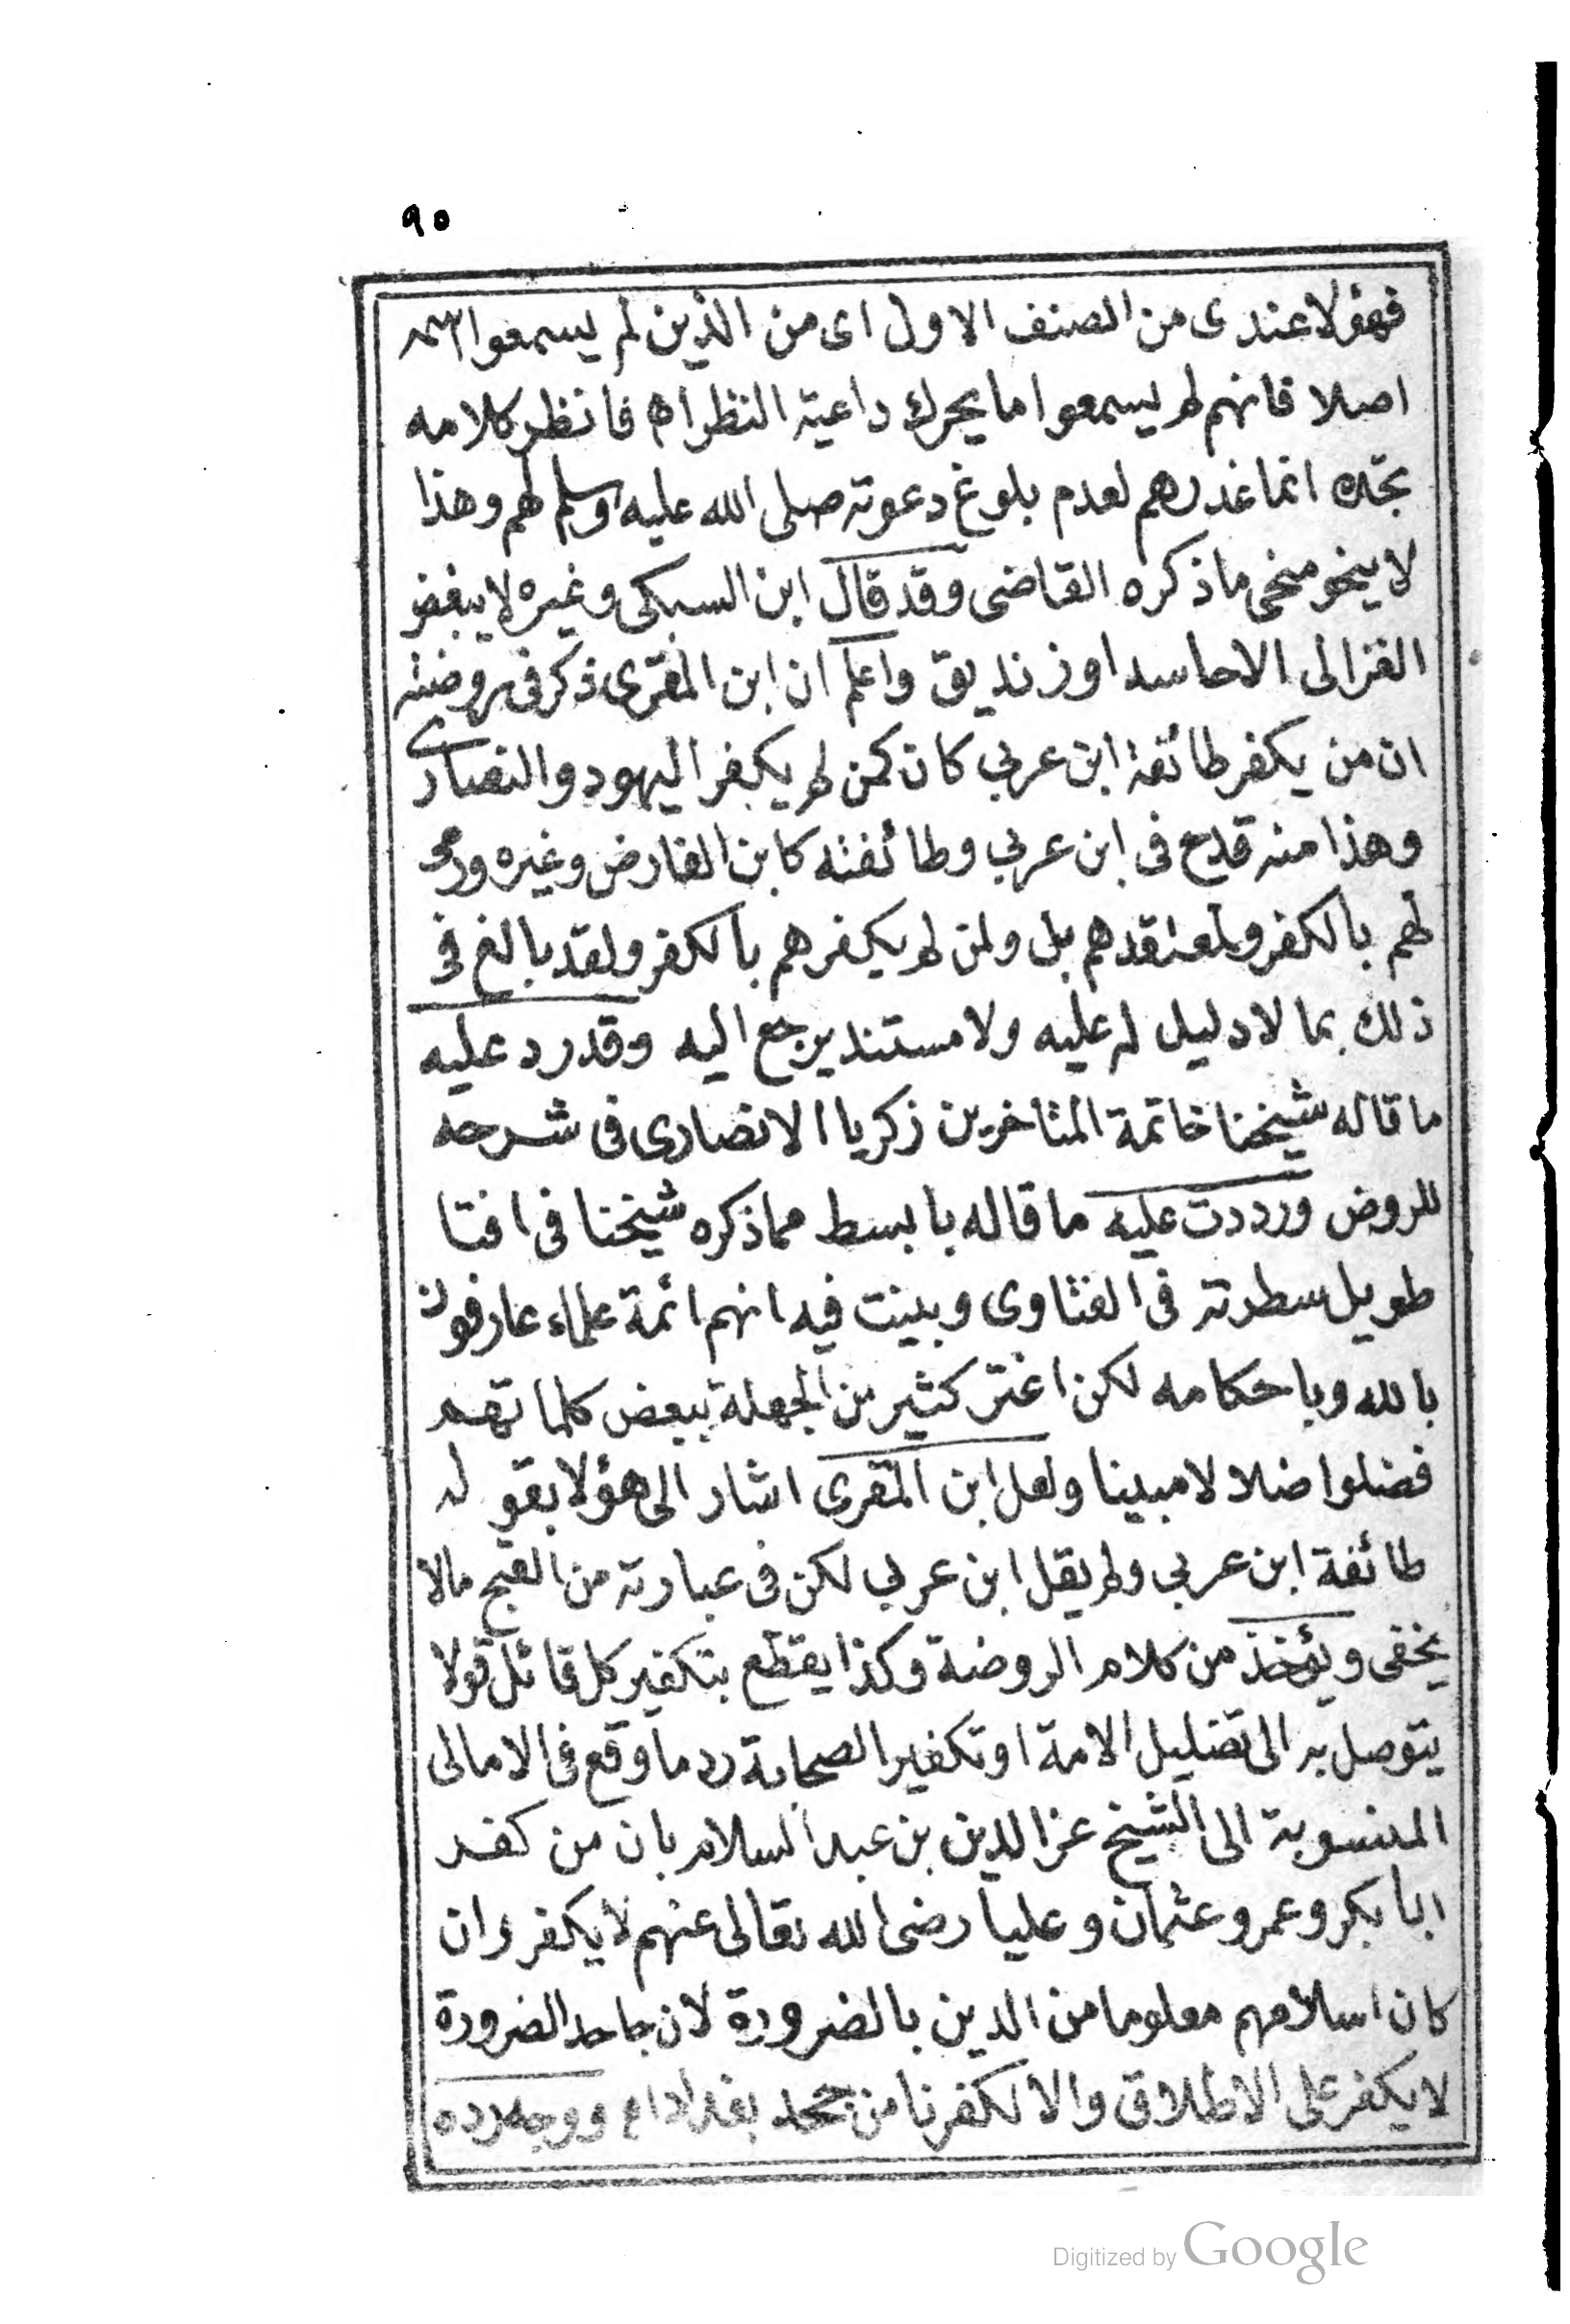 ٩٥
فهؤلا عندى من الصنف الاول اى من الذين لم يسمعوا اسمه
اصلا فانهم لم يسمعوا ما يحرك داعية النظر اه فانظر كلامه
تجده انما عذرهم لعدم بلوغ دعوته صلى الله عليه وسلم لهم وهذا
لا ينحو منحى ما ذكره القاضى وقد قال ابن السبكى وغيره لا يبغض
الغزالى الا حاسد او زنديق واعلم ان ابن المقرى ذكر فى روضته
ان من يكفر طائفة ابن عربي كان كمن لم يكفر اليهود والنصارى
وهذا منه قدح فى ابن عربي وطائفته كابن الفارض وغيره ورمى
لهم بالكفر ولمعتقدهم بل ولمن لم يكفرهم بالكفر ولقد بالغ فى
ذلك بما لا دليل له عليه ولا مستند يرجع اليه وقد رد عليه
ما قاله شيخنا خاتمة المتاخرين زكريا الانصارى فى شرحه
للروض ورددت عليه ما قاله بابسط مما ذكره شيخنا فى افتا
طويل سطرته فى الفتاوى وبينت فيه انهم ائمة علماء عارفون
بالله وباحكامه لكن اغتر كثير من الجهلة ببعض كلماتهم
فضلوا ضلالا مبينا ولعل ابن المقرى اشار الى هؤلا بقوله
طائفة ابن عربي ولم يقل ابن عربي لكن فى عبارته من القبح مالا
يخفى ويؤخذ من كلام الروضة وكذا يقطع بتكفير كل قائل قولا
يتوصل به الى تضليل الامة او تكفير الصحابة رد ما وقع فى الامالى
المنسوبة الى الشيخ عز الدين بن عبد السلام بان من كفر
ابا بكر وعمر وعثمان وعليا رضى الله تعالى عنهم لا يكفر وان
كان اسلامهم معلوما من الدين بالضرورة لان جاحد الضرورة
لا يكفر على الاطلاق والا لكفرنا من جحد بغداد اه ووجه رده
Digitized by Google